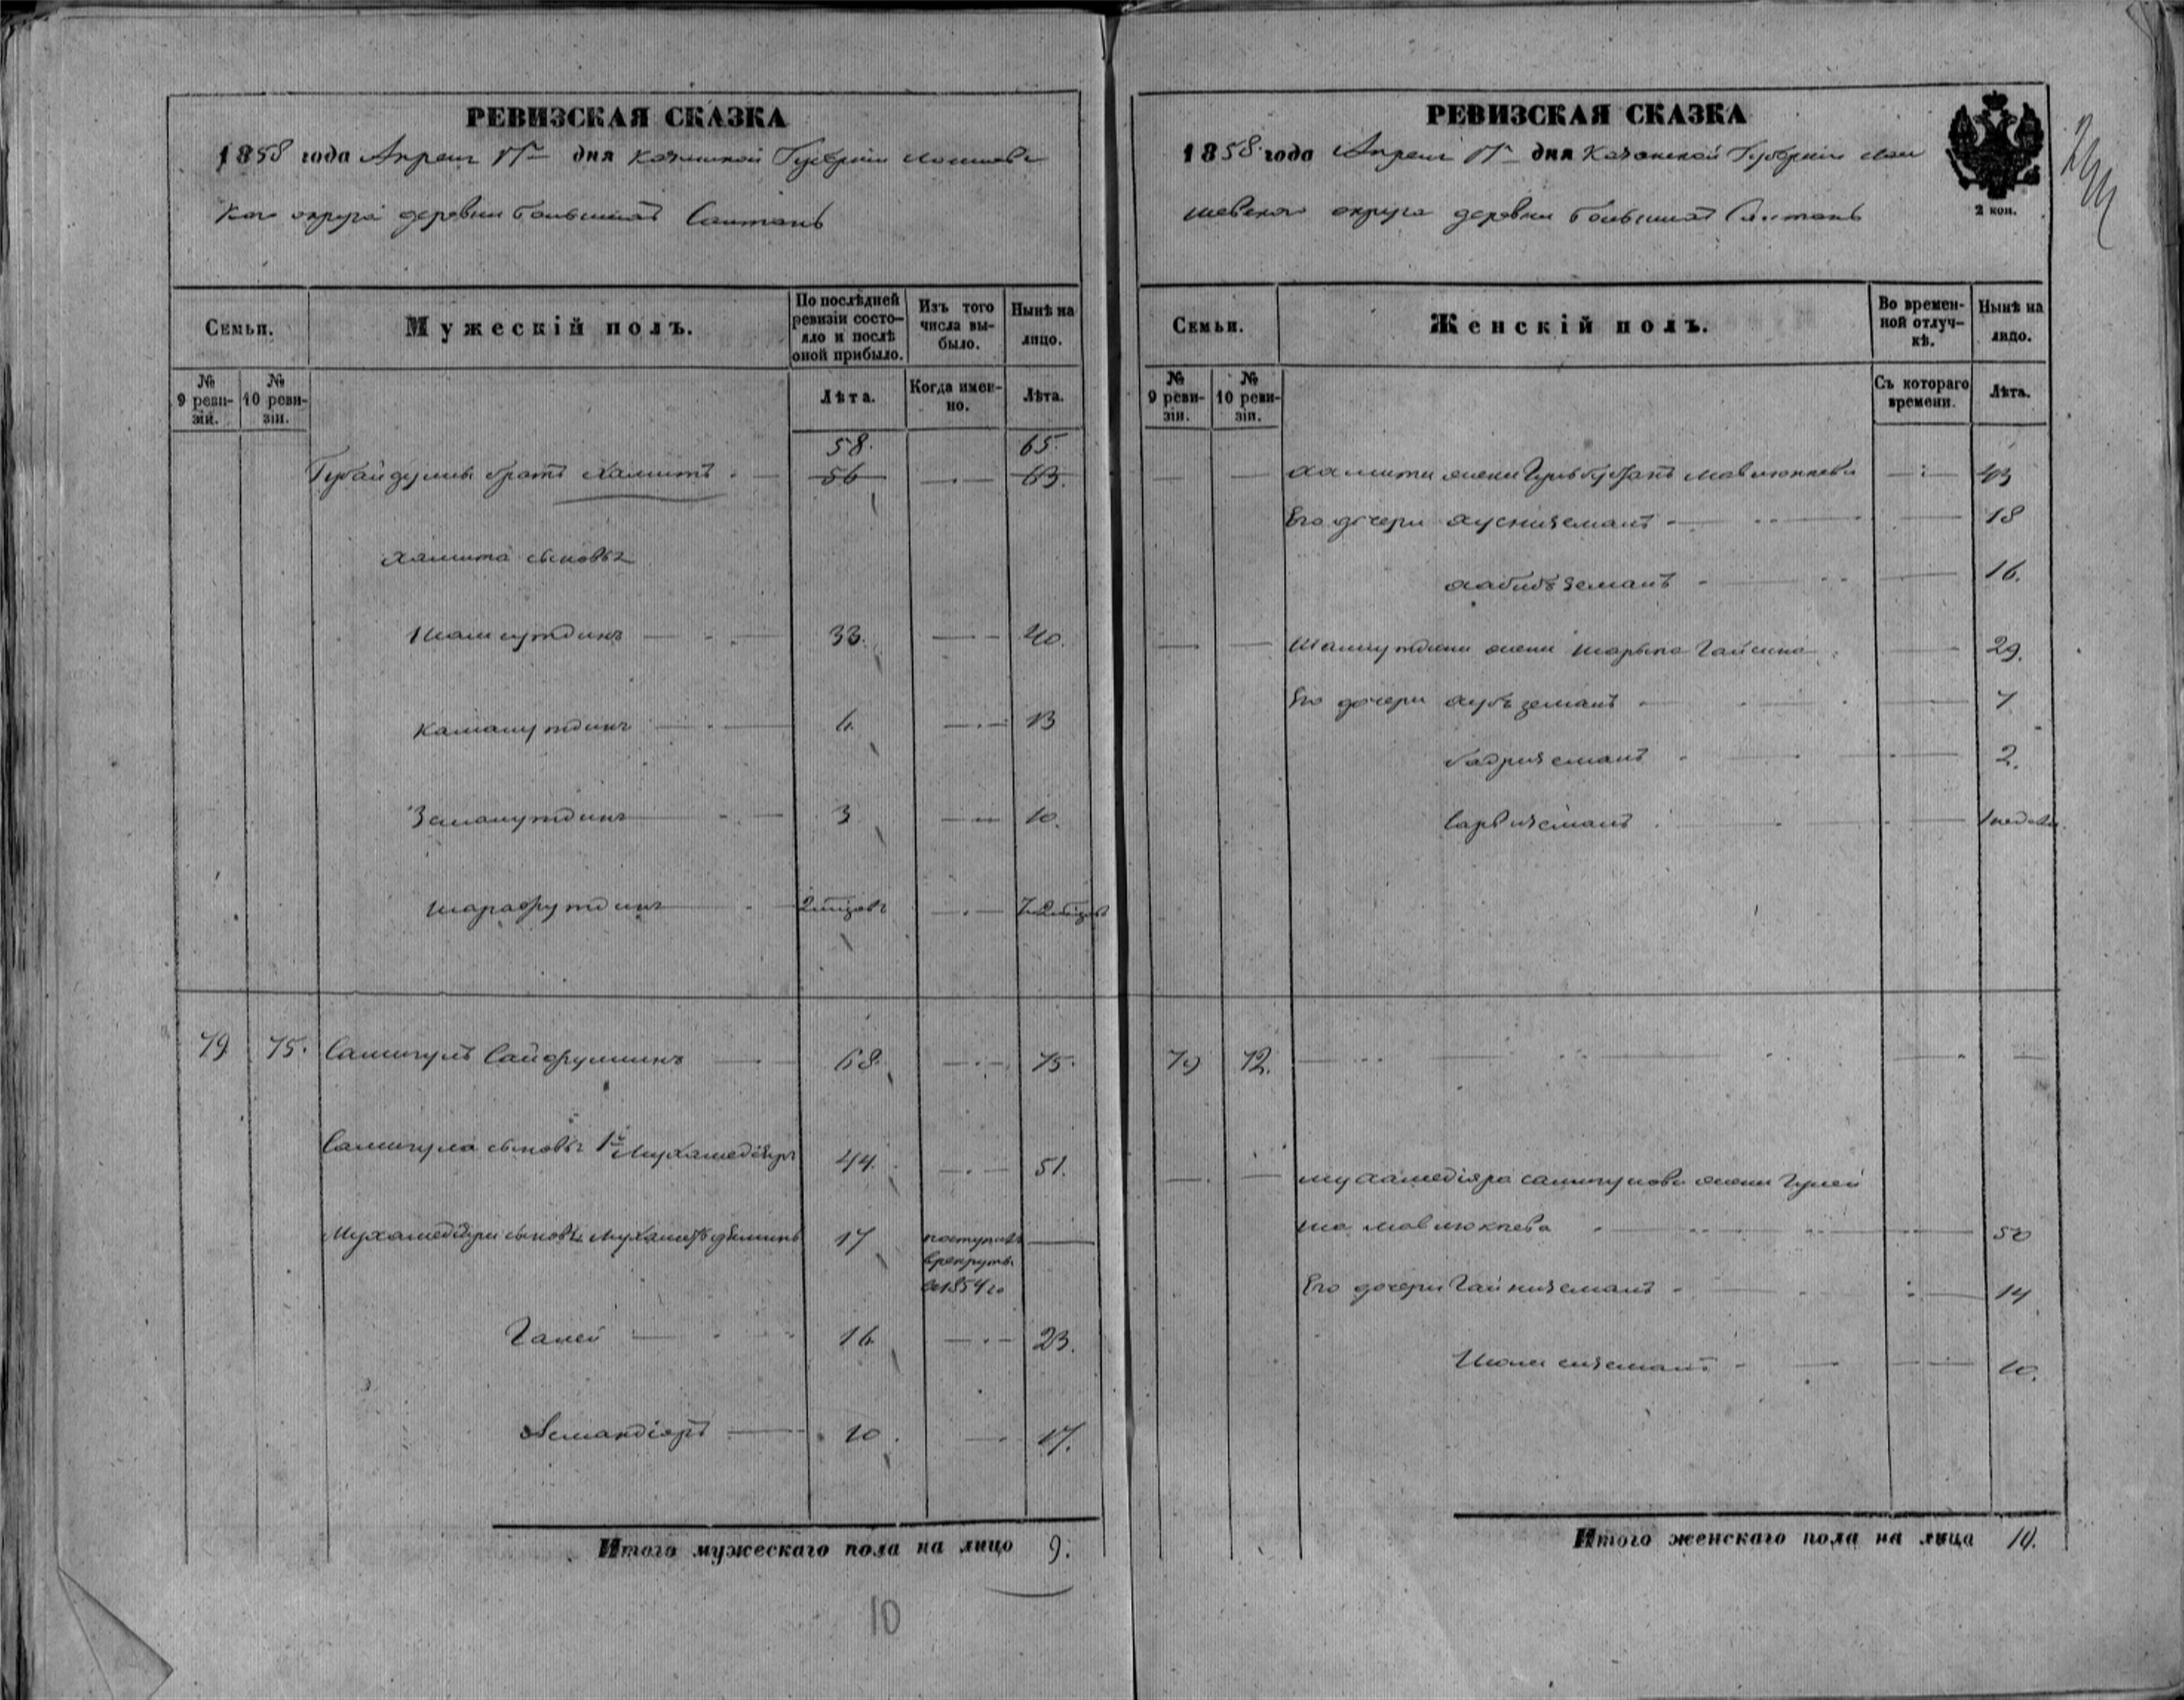 РЕВИЗСКАЯ СКАЗКА
1858 года Апреля дня Казанской Губернии Лаишевс
каго округа деревни большихъ Салтанъ
Семьи.
Мужескій полъ.
По послѣдней ревизіи состояло и послѣ оной прибыло.
Изъ того числа выбыло.
Нынѣ на лицо.
№ 9 ревизіи.
№ 10 ревизіи.
Лѣта.
Когда именно.
Лѣта.
58. 65.
Губайдуллы братъ Хамитъ 56 63.
Хамита сыновья
Шамсутдинъ 33. 40.
Камалутдинъ 6. 13
Замалутдинъ 3 10.
Шарафутдинъ 2 7
79 75. Салигулъ Сайфуллинъ 68. 75.
Салигула сыновья 1й Мухамедіяръ 44. 51.
Мухамедіяра сыновья 17 поступилъ
в рекруты
в 1854 го
Галей 16 23.
10. 17.
Итого мужескаго пола на лицо 9.
10
РЕВИЗСКАЯ СКАЗКА
1858 года Апреля дня Казанской Губернии Лаи
шевскаго округа деревни большихъ Салтанъ
2 коп.
Семьи.
Женскій полъ.
Во временной отлучкѣ.
Нынѣ на лицо.
№ 9 ревизіи.
№ 10 ревизіи.
Съ котораго времени.
Лѣта.
Хамита жена Мавлюкаева 43
Его дочери Хуснизаманъ 18
Хабибъземанъ 16.
Шамсутдина жена Гайсина 29.
Его дочери земанъ 7
Бадриземанъ 2.
Сарвиземанъ 1 недели
79 72.
Мухамедіяра Салигулова жена
Мавлюкаева 50
Его дочери Гайниземанъ 14
10.
Итого женскаго пола на лицо 10.